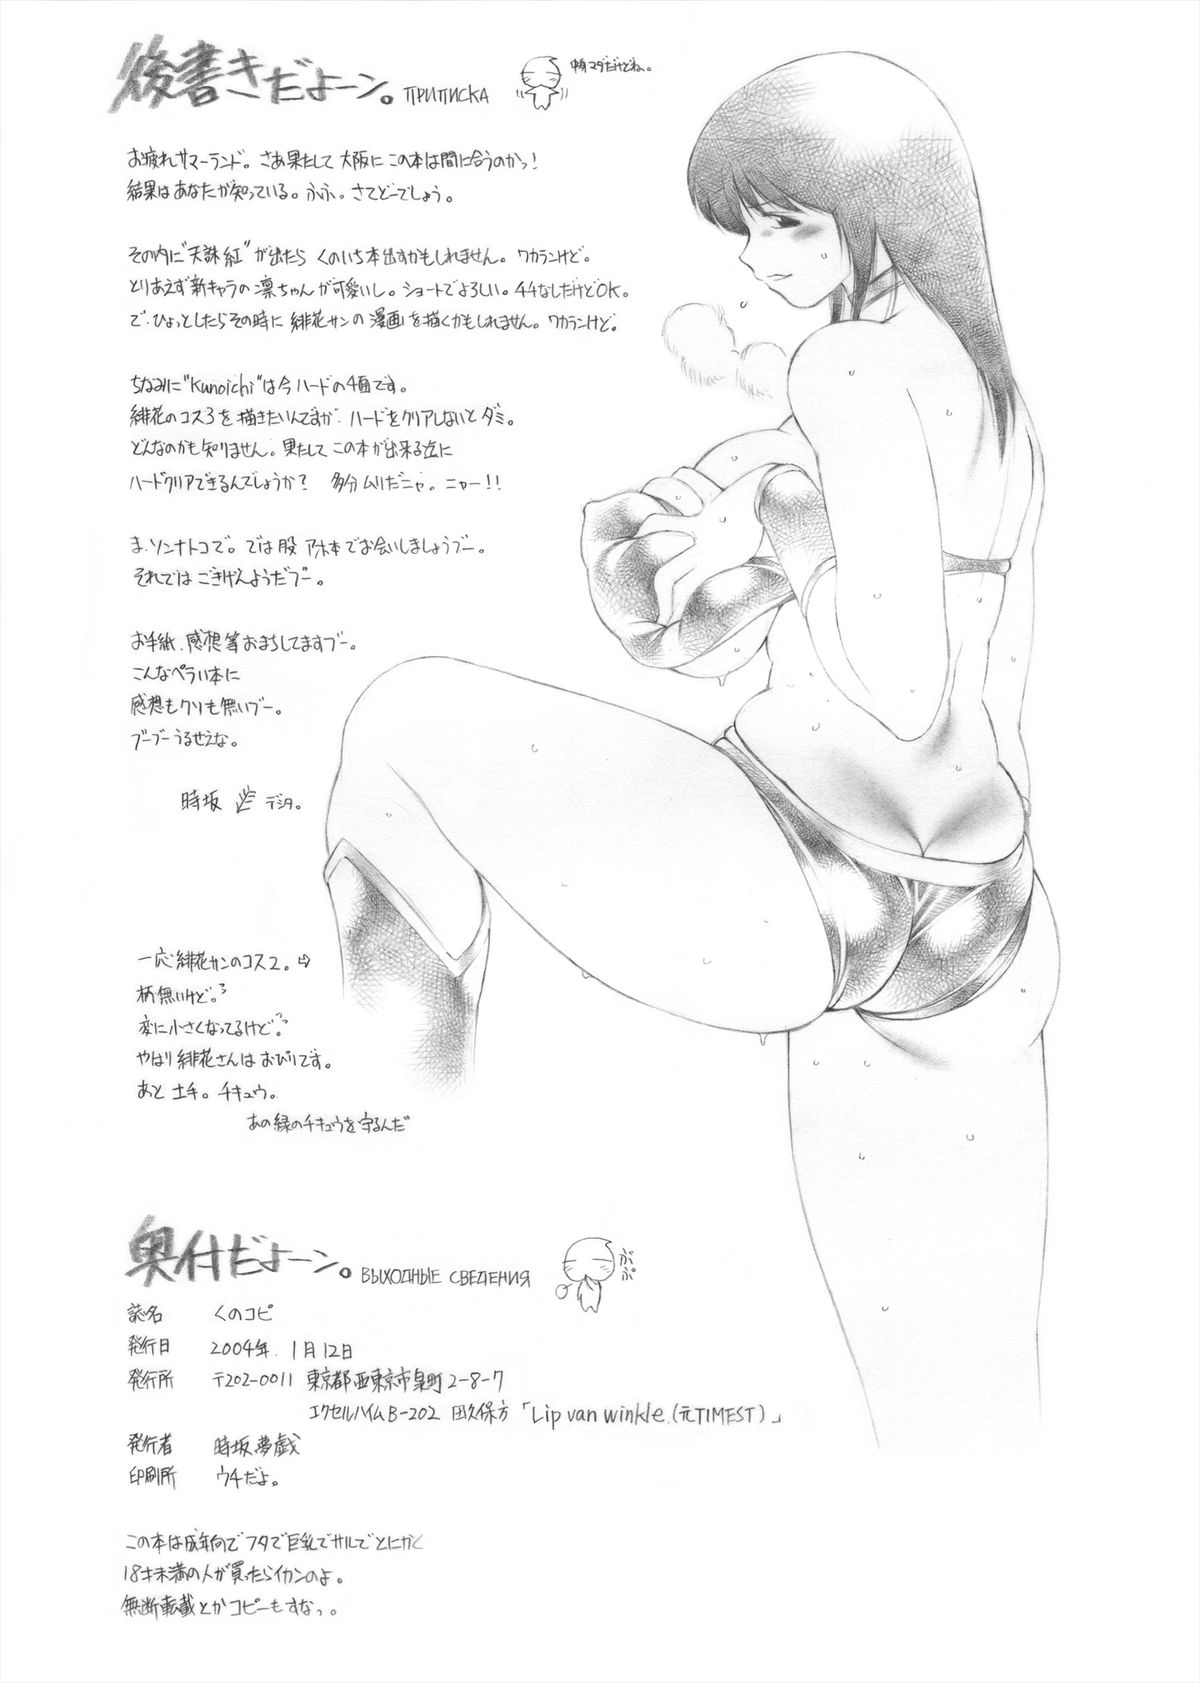 後書きだよーン。 ПРИПИСКА
中身マダだけどね。
お疲れサマーランド。さあ果たして大阪にこの本は間に合うのかっ!
結果はあなたが知っている。ふふ。さてどーでしょう。
その内に"天誅 紅"が出たら くのいち本出すかもしれません。ワカランけど。
とりあえず新キャラの凛ちゃんが可愛いし。ショートでよろしい。チチなしだけどOK。
で、ひょっとしたらその時に 緋花サンの漫画を描くかもしれません。ワカランけど。
ちなみに"Kunoichi"は今ハードの4面です。
緋花のコス3を描きたいんですが、ハードをクリアしないとダミ。
どんなのかも知りません。果たしてこの本が出来る迄に
ハードクリアできるんでしょうか? 多分ムリだニャ。ニャー!!
ま、ソンナトコで。では股 アホ本でお会いしましょうブー。
それでは ごきげんようだブー。
お手紙、感想等おまちしてますブー。
こんなペラい本に
感想もクソも無いブー。
ブーブーうるせえな。
時坂 デシタ。
一応緋花サンのコス2。⇨
柄無いけど。
変に小さくなってるけど。
やはり緋花さんは おぴりです。
あと 土手。チキュウ。
あの緑のチキュウを守るんだ
奥付だよーン。 ВЫХОДНЫЕ СВЕДЕНИЯ
ぷぷ
誌名 くのコピ
発行日 2004年 1月12日
発行所 〒202-0011 東京都西東京市泉町2-8-7
エクセルハイムB-202 田久保方 「Lip van winkle.(元TIMEST)」
発行者 時坂夢戯
印刷所 ウチだよ。
この本は成年向でフタで巨乳でサルでとにかく
18才未満の人が買ったらイカンのよ。
無断転載とかコピーもすなっ。